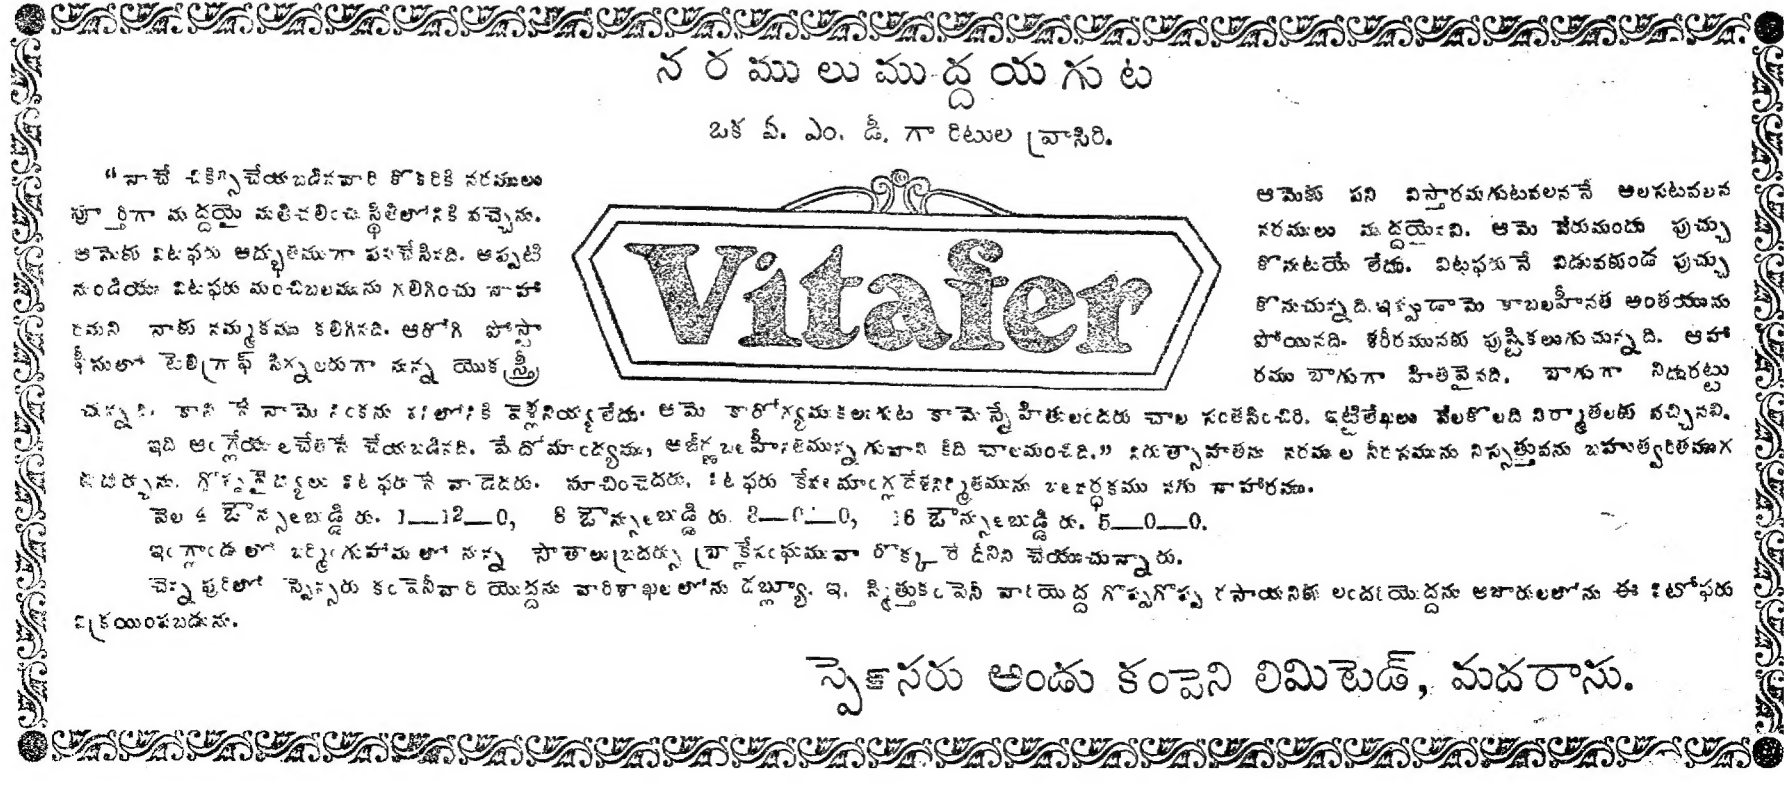 నరములుముద్దయగుట
ఒక వ. ఎం. డీ. గారిటుల వ్రాసిరి.
“నాచే చికిత్సచేయబడినవారి కొకరికి నరములు
పూర్తిగా ముద్దయై మతిచలించు స్థితిలోనికి వచ్చెను.
ఆమెకు విటఫరు అద్భుతముగా పనిచేసినది. అప్పటి
నుండియు విటఫరు మంచిబలమును గలిగించు నాహా
రమని నాకు నమ్మకము కలిగినది. ఆరోగి పోస్టా
ఫీసులో టెలిగ్రాఫ్ సిగ్నలరుగా నున్న యొకస్త్రీ
Vitafer
ఆమెకు పని విస్తారమగుటవలననే అలసటవలన
నరములు ముద్దయైనవి. ఆమె వేరుమందు పుచ్చు
కొనుటయే లేదు. విటఫరునే విడువకుండ పుచ్చు
కొనుచున్నది. ఇప్పుడామె కాబలహీనత అంతయును
పోయినది. శరీరమునకు పుష్టికలుగుచున్నది. ఆహా
రము బాగుగా హితవైనది. బాగుగా నిదురట్టు
చున్నది. కాని నే నామె నింకను పనిలోనికి వెళ్లనియ్యలేదు. ఆమె కారోగ్యముకలుగుట కామె స్నేహితులందరు చాల సంతసించిరి. ఇట్టిలేఖలు వేలకొలది నిర్మాతలకు వచ్చినవి.
ఇది ఆంగ్లేయులచేతనే చేయబడినది. మేదోమాంద్యము, అజీర్ణబలహీనతమున్నగువాని కిది చాలమంచిది.” నిరుత్సాహతను నరముల నీరసమును నిస్సత్తువను బహుత్వరితముగ
కుదుర్చును. గొప్పవైద్యులు విటఫరునే వాడెదరు. సూచించెదరు. విటఫరు కేవలమాంగ్లదేశనిర్మితమును బలవర్ధకము నగు నాహారము.
వెల 4 ఔన్సులబుడ్డి రు. 1—12—0, 8 ఔన్సులబుడ్డి రు. 3—0—0, 16 ఔన్సులబుడ్డి రు. 5—0—0.
ఇంగ్లాండులో బర్మింగుహాములో నున్న సౌతాలుబ్రదర్సు బ్రాక్లేసంఘమువా రొక్కరే దీనిని చేయుచున్నారు.
చెన్నపురిలో స్పెన్సరు కంపెనీవారి యొద్దను వారిశాఖలలోను డబ్ల్యూ. ఇ. స్మిత్తుకంపెనీ వారియొద్ద గొప్పగొప్ప రసాయనికు లందరియొద్దను బజారులలోను ఈ విటోఫరు
విక్రయింపబడును.
స్పెన్సరు అండు కంపెని లిమిటెడ్, మదరాసు.